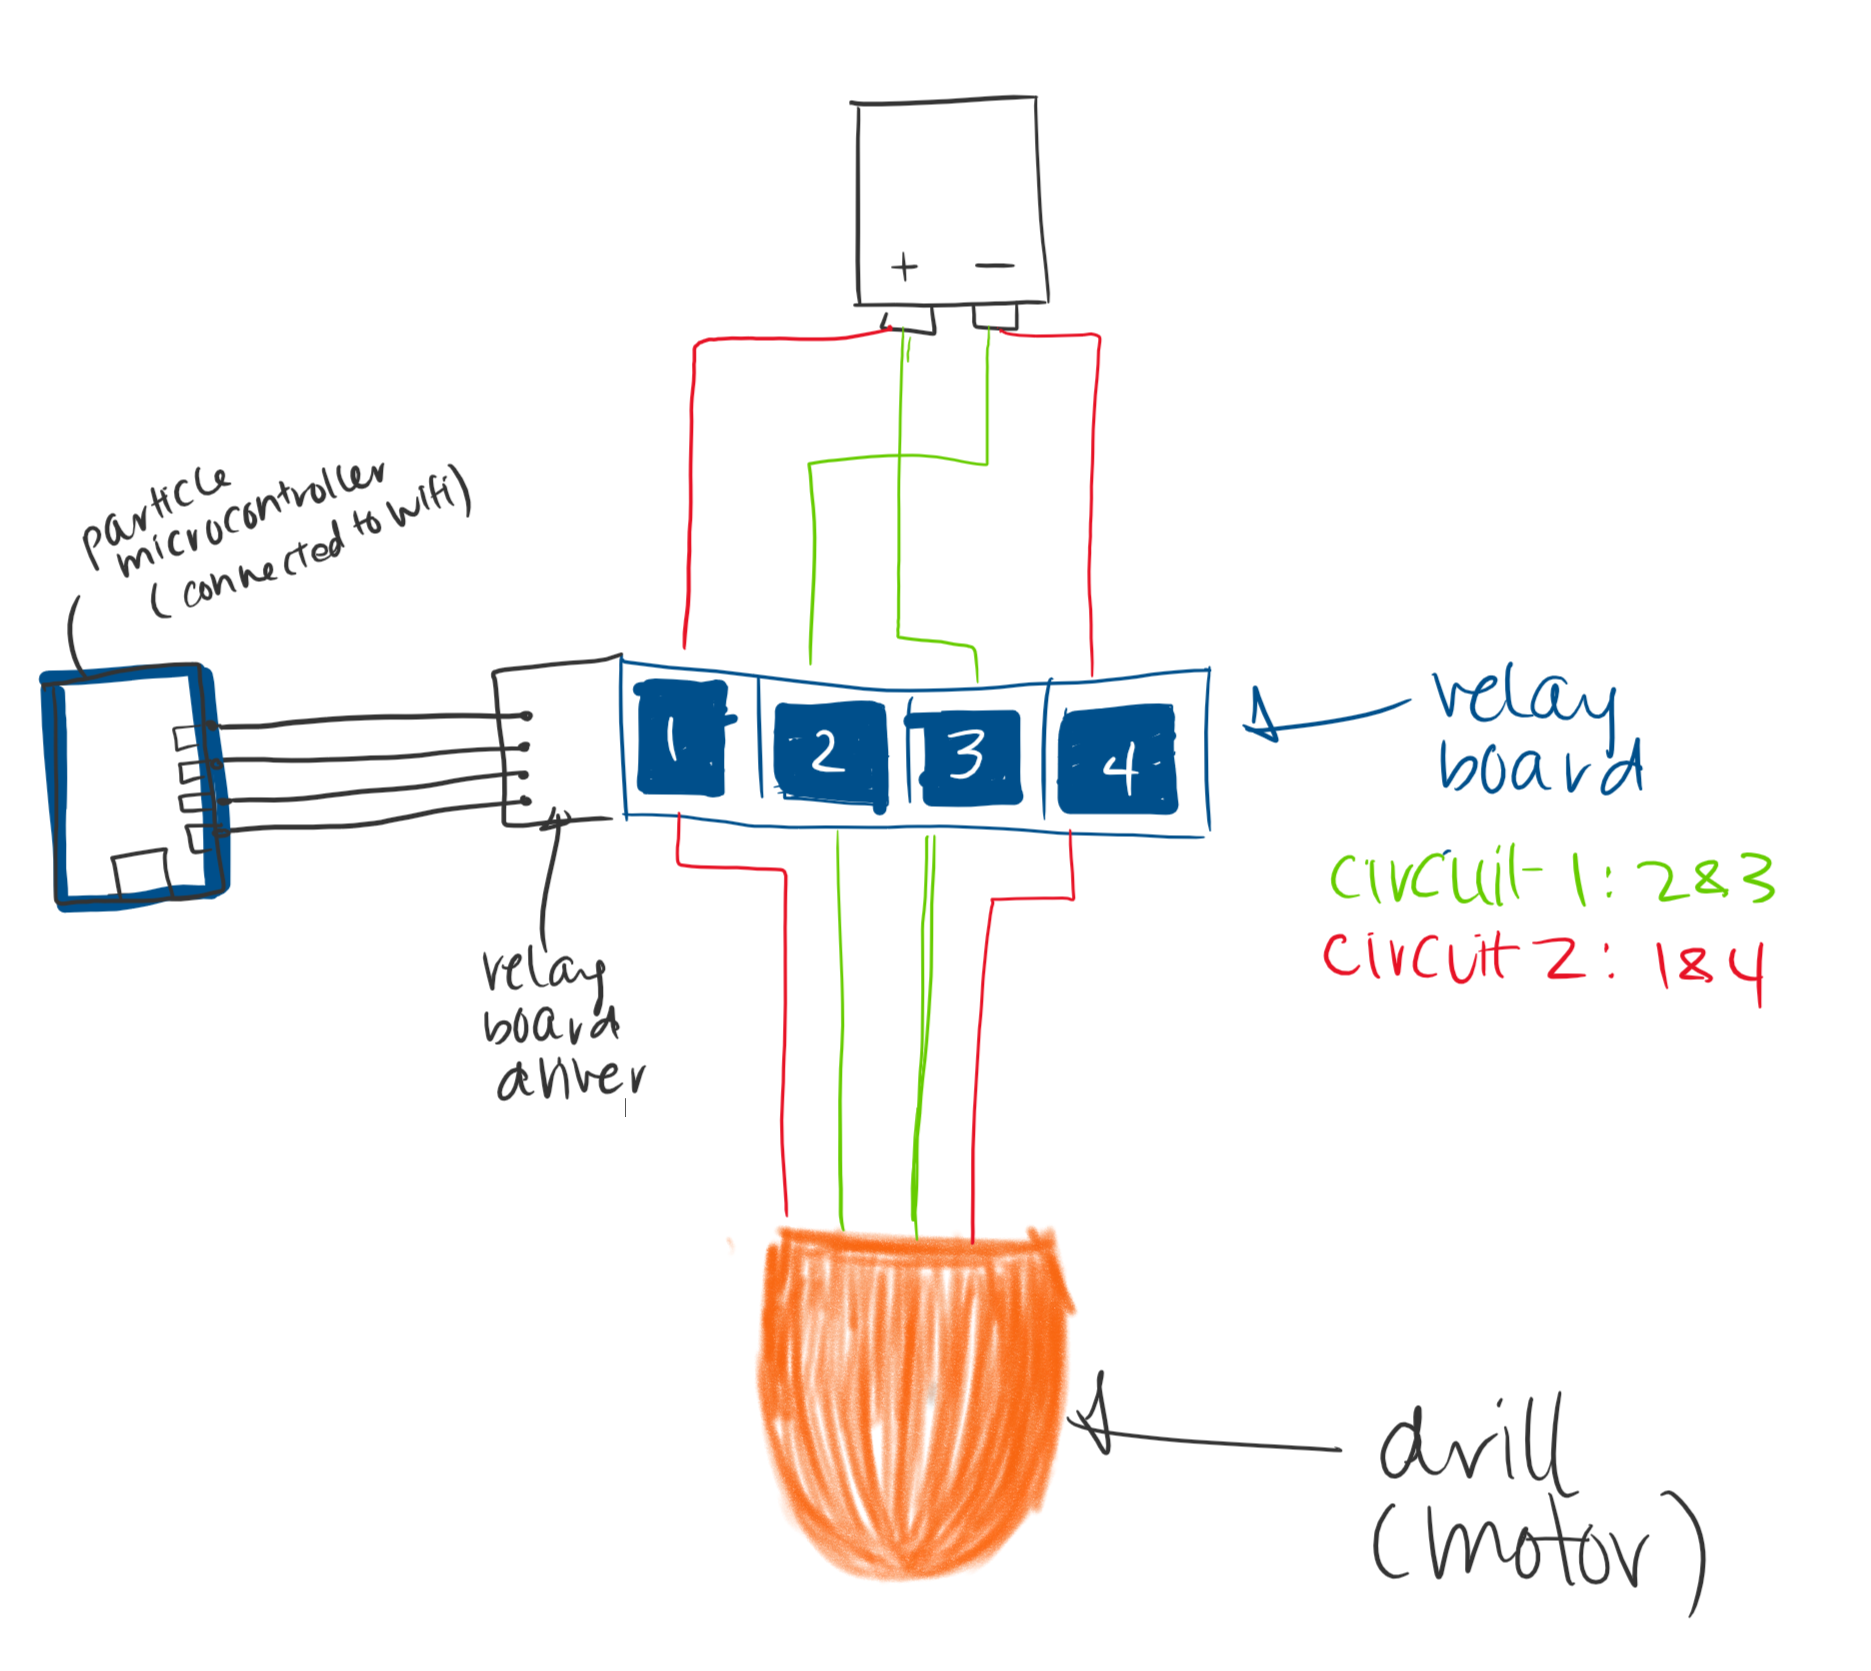 + —
particle
microcontroller
(connected to wifi)
1 2 3 4
relay
board
circuit 1: 2&3
circuit 2: 1&4
relay
board
driver
drill
(motor)